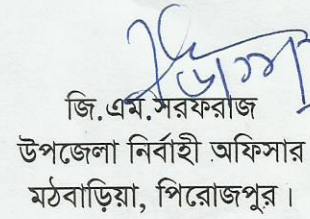 জি.এম.সরফরাজ
উপজেলা নির্বাহী অফিসার
মঠবাড়িয়া, পিরোজপুর।